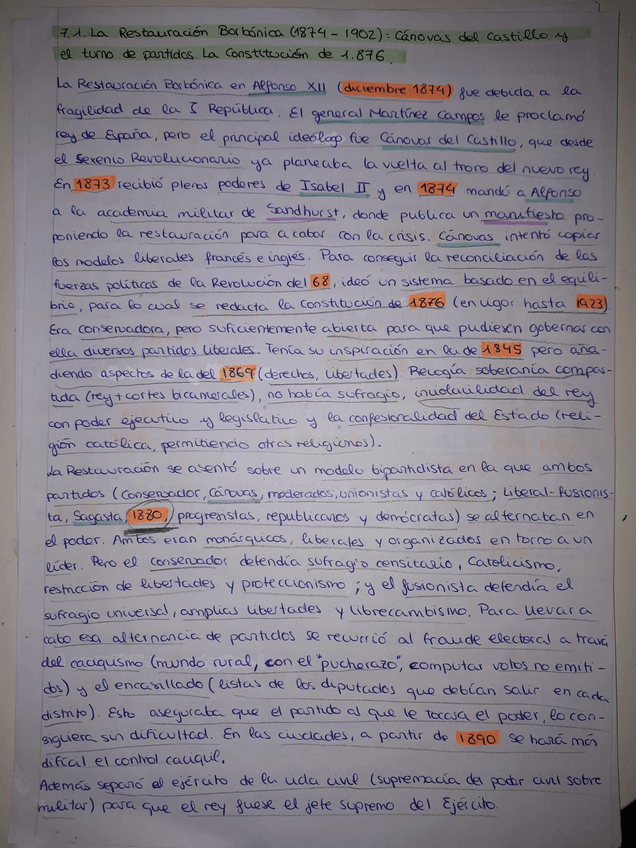 7.1. La Restauración Borbónica (1874-1902): Cánovas del Castillo y
el turno de partidos. La Constitución de 1.876.
La Restauración Borbónica en Alfonso XII (diciembre 1874) fue debida a la
fragilidad de la I República. El general Martínez Campos le proclamó
rey de España, pero el principal ideólogo fue Cánovas del Castillo, que desde
el Sexenio Revolucionario ya planeaba la vuelta al trono del nuevo rey.
En 1873 recibió plenos poderes de Isabel II y en 1874 mandó a Alfonso
a la academia militar de Sandhurst, donde publica un manifiesto pro-
poniendo la restauración para acabar con la crisis. Cánovas intentó copiar
los modelos liberales francés e inglés. Para conseguir la reconciliación de las
fuerzas políticas de la Revolución del 68, ideó un sistema basado en el equili-
brio, para lo cual se redacta la Constitución de 1876 (en vigor hasta 1923)
Era conservadora, pero suficientemente abierta para que pudiesen gobernar con
ella diversos partidos liberales. Tenía su inspiración en la de 1845 pero aña-
diendo aspectos de la del 1869 (derechos, libertades). Recogía soberanía compar-
tida (rey + cortes bicamerales), no había sufragio, inviolavilidad del rey
con poder ejecutivo y legislativo y la confesionalidad del Estado (reli-
gión católica, permitiendo otras religiones).
La Restauración se asentó sobre un modelo bipartidista en la que ambos
partidos (conservador, Cánovas, moderados, unionistas y católicos; Liberal-Fusionis-
ta, Sagasta, 1880, progresistas, republicanos y demócratas) se alternaban en
el poder. Ambos eran monárquicos, liberales y organizados en torno a un
líder. Pero el conservador defendía sufragio censitario, Catolicismo,
restricción de libertades y proteccionismo; y el fusionista defendía el
sufragio universal, amplias libertades y librecambismo. Para llevar a
cabo esa alternancia de partidos se recurrió al fraude electoral a través
del caciquismo (mundo rural, con el "pucherazo", computar votos no emiti-
dos) y el encasillado (listas de los diputados que debían salir en cada
distrito). Esto aseguraba que el partido al que le tocava el poder, lo con-
siguiera sin dificultad. En las ciudades, a partir de 1890 se hará más
difícil el control caciquil.
Además separó el ejército de la vida civil (supremacía del poder civil sobre
militar) para que el rey fuese el jefe supremo del Ejército.